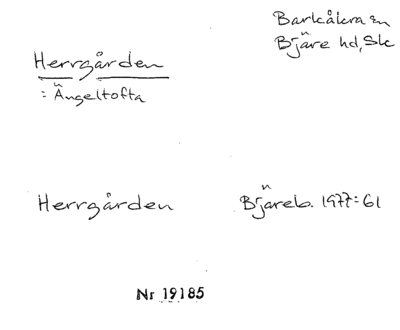 Barkåkra sn
Bjäre hd, Sk
Herrgården
: Ängeltofta
Herrgården
Bjäreb. 1977:61
Nr 19185